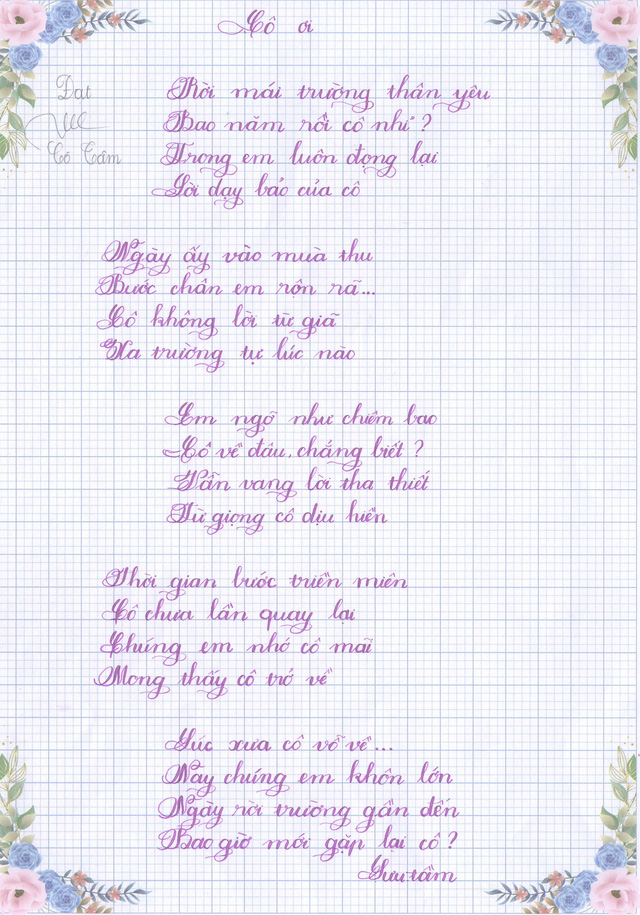 Cô ơi
Đạt
Cô Cầm
Rời mái trường thân yêu
Bao năm rồi cô nhỉ?
Trong em luôn đọng lại
Lời dạy bảo của cô
Ngày ấy vào muà thu
Bước chân em rộn rã...
Cô không lời từ giã
Xa trường tự lúc nào
Em ngỡ như chiêm bao
Cô về đâu, chẳng biết?
Vẫn vang lời tha thiết
Từ giọng cô dịu hiền
Thời gian bước triền miên
Cô chưa lần quay lại
Chúng em nhớ cô mãi
Mong thấy cô trở về
Lúc xưa cô vỗ về...
Nay chúng em khôn lớn
Ngày rời trường gần đến
Bao giờ mới gặp lại cô?
Sưu tầm